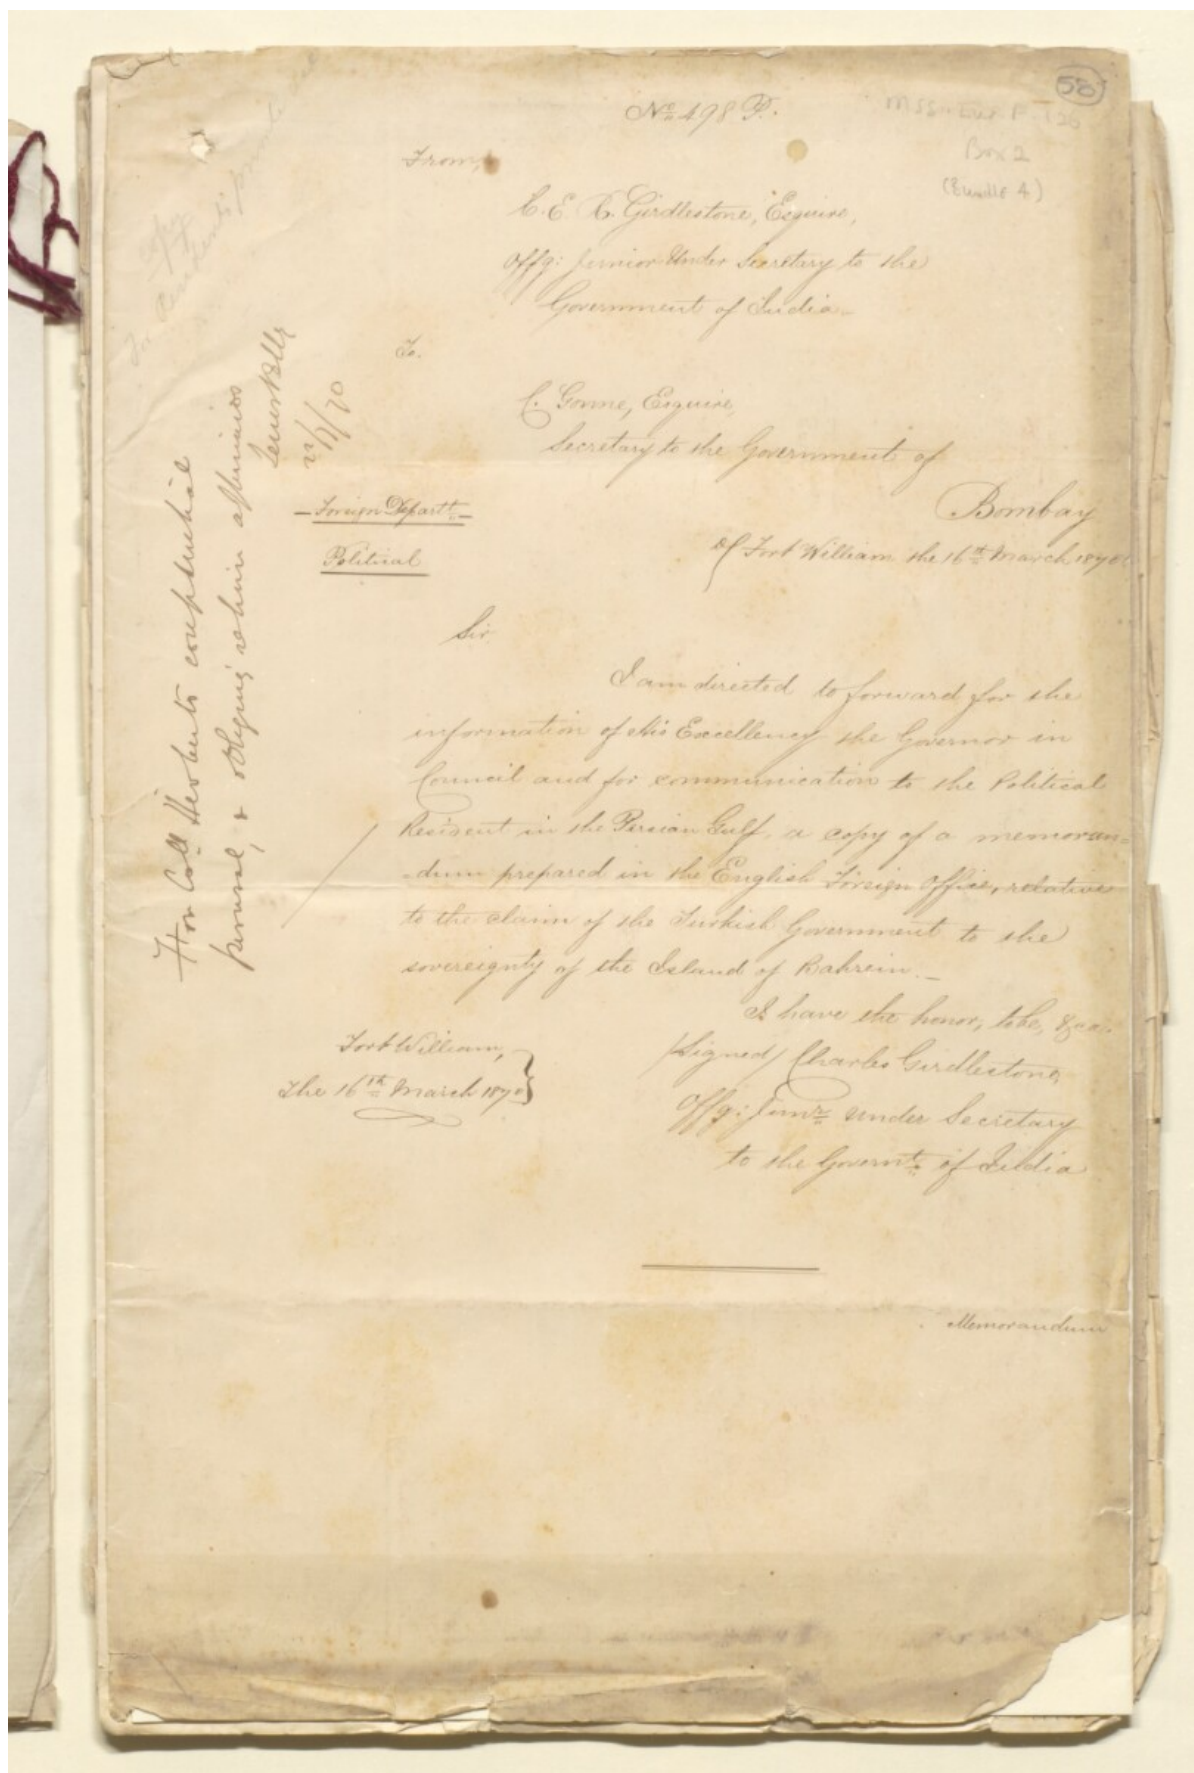 58
No. 498 P.
Mss. Eur F. 126
Box 2
(Bundle 4)
From,
C. E. R. Girdlestone, Esquire,
Offg: Junior Under Secretary to the
Government of India.
To.
C. Gonne, Esquire,
Secretary to the Government of
Bombay
Foreign Departt.
Political
Fort William the 16th March 1870
Sir,
I am directed to forward for the
information of His Excellency the Governor in
Council and for communication to the Political
Resident in the Persian Gulf, a copy of a memoran=
=dum prepared in the English Foreign Office, relative
to the claim of the Turkish Government to the
sovereignty of the Island of Bahrein._
I have the honor, to be, &ca.
Fort William,
The 16th March 1870
/Signed/ Charles Girdlestone,
Offg: Junr. under Secretary
to the Governt. of India
Memorandum
For Coll Herberts confidential
perusal, & obliging return
Lewis Pelly
22/4/70
copy